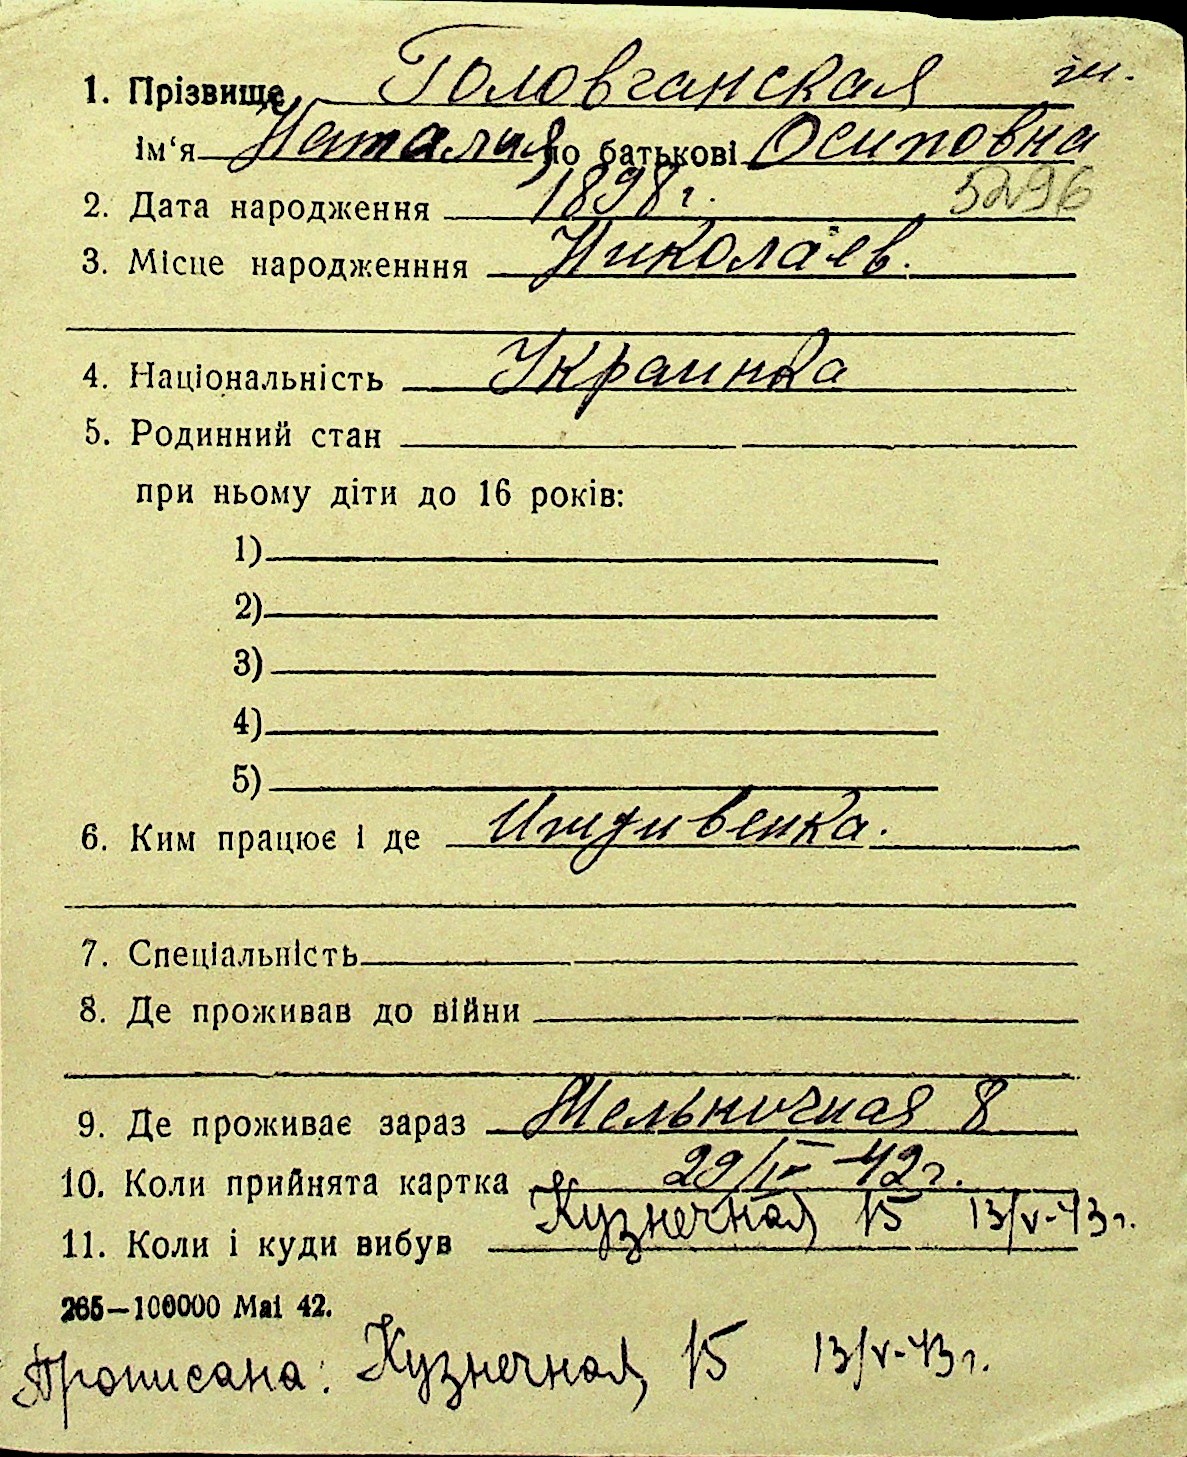 1. Прізвище Головганская ж.
ім‘я Наталия по батькові Осиповна
2. Дата народження 1898 г. 5296
3. Місце народженння Николаев.
4. Національність Украинка
5. Родинний стан
при ньому діти до 16 років:
1)
2)
3)
4)
5)
6. Ким працює і де Иждивенка.
7. Спеціальність
8. Де проживав до війни
9. Де проживає зараз Мельничная 8
10. Коли прийнята картка 29/IV-42 г.
11. Коли і куди вибув Кузнечная 15 13/V-43 г.
265—100000 Маі 42.
Прописана: Кузнечная, 15 13/V-43 г.